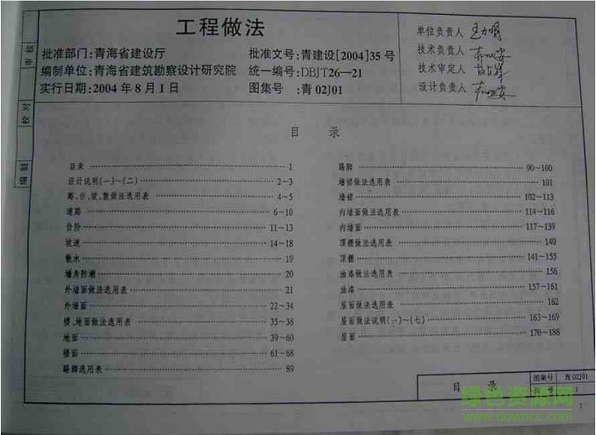 工程做法
批准部门:青海省建设厅 批准文号:青建设[2004]35号
编制单位:青海省建筑勘察设计研究院 统一编号:DBJT26—21
实行日期:2004年8月1日 图集号:青02J01
单位负责人
技术负责人
技术审定人
设计负责人
审核
校对
编制
目录
目录 1
设计说明(一)~(二) 2~3
路、台、坡、散做法选用表 4~5
道路 6~10
台阶 11~13
坡道 14~18
散水 19
墙身防潮 20
外墙面做法选用表 21
外墙面 22~34
楼、地面做法选用表 35~38
地面 39~60
楼面 61~68
踢脚选用表 89
踢脚 90~100
墙裙做法选用表 101
墙裙 102~113
内墙面做法选用表 114~116
内墙面 117~139
顶棚做法选用表 140
顶棚 141~155
油漆做法选用表 156
油漆 157~161
屋面做法选用表 162
屋面做法说明(一)~(七) 163~169
屋面 170~188
目录 图集号 青02J01
页号 1
绿色资源网
www.downcc.com